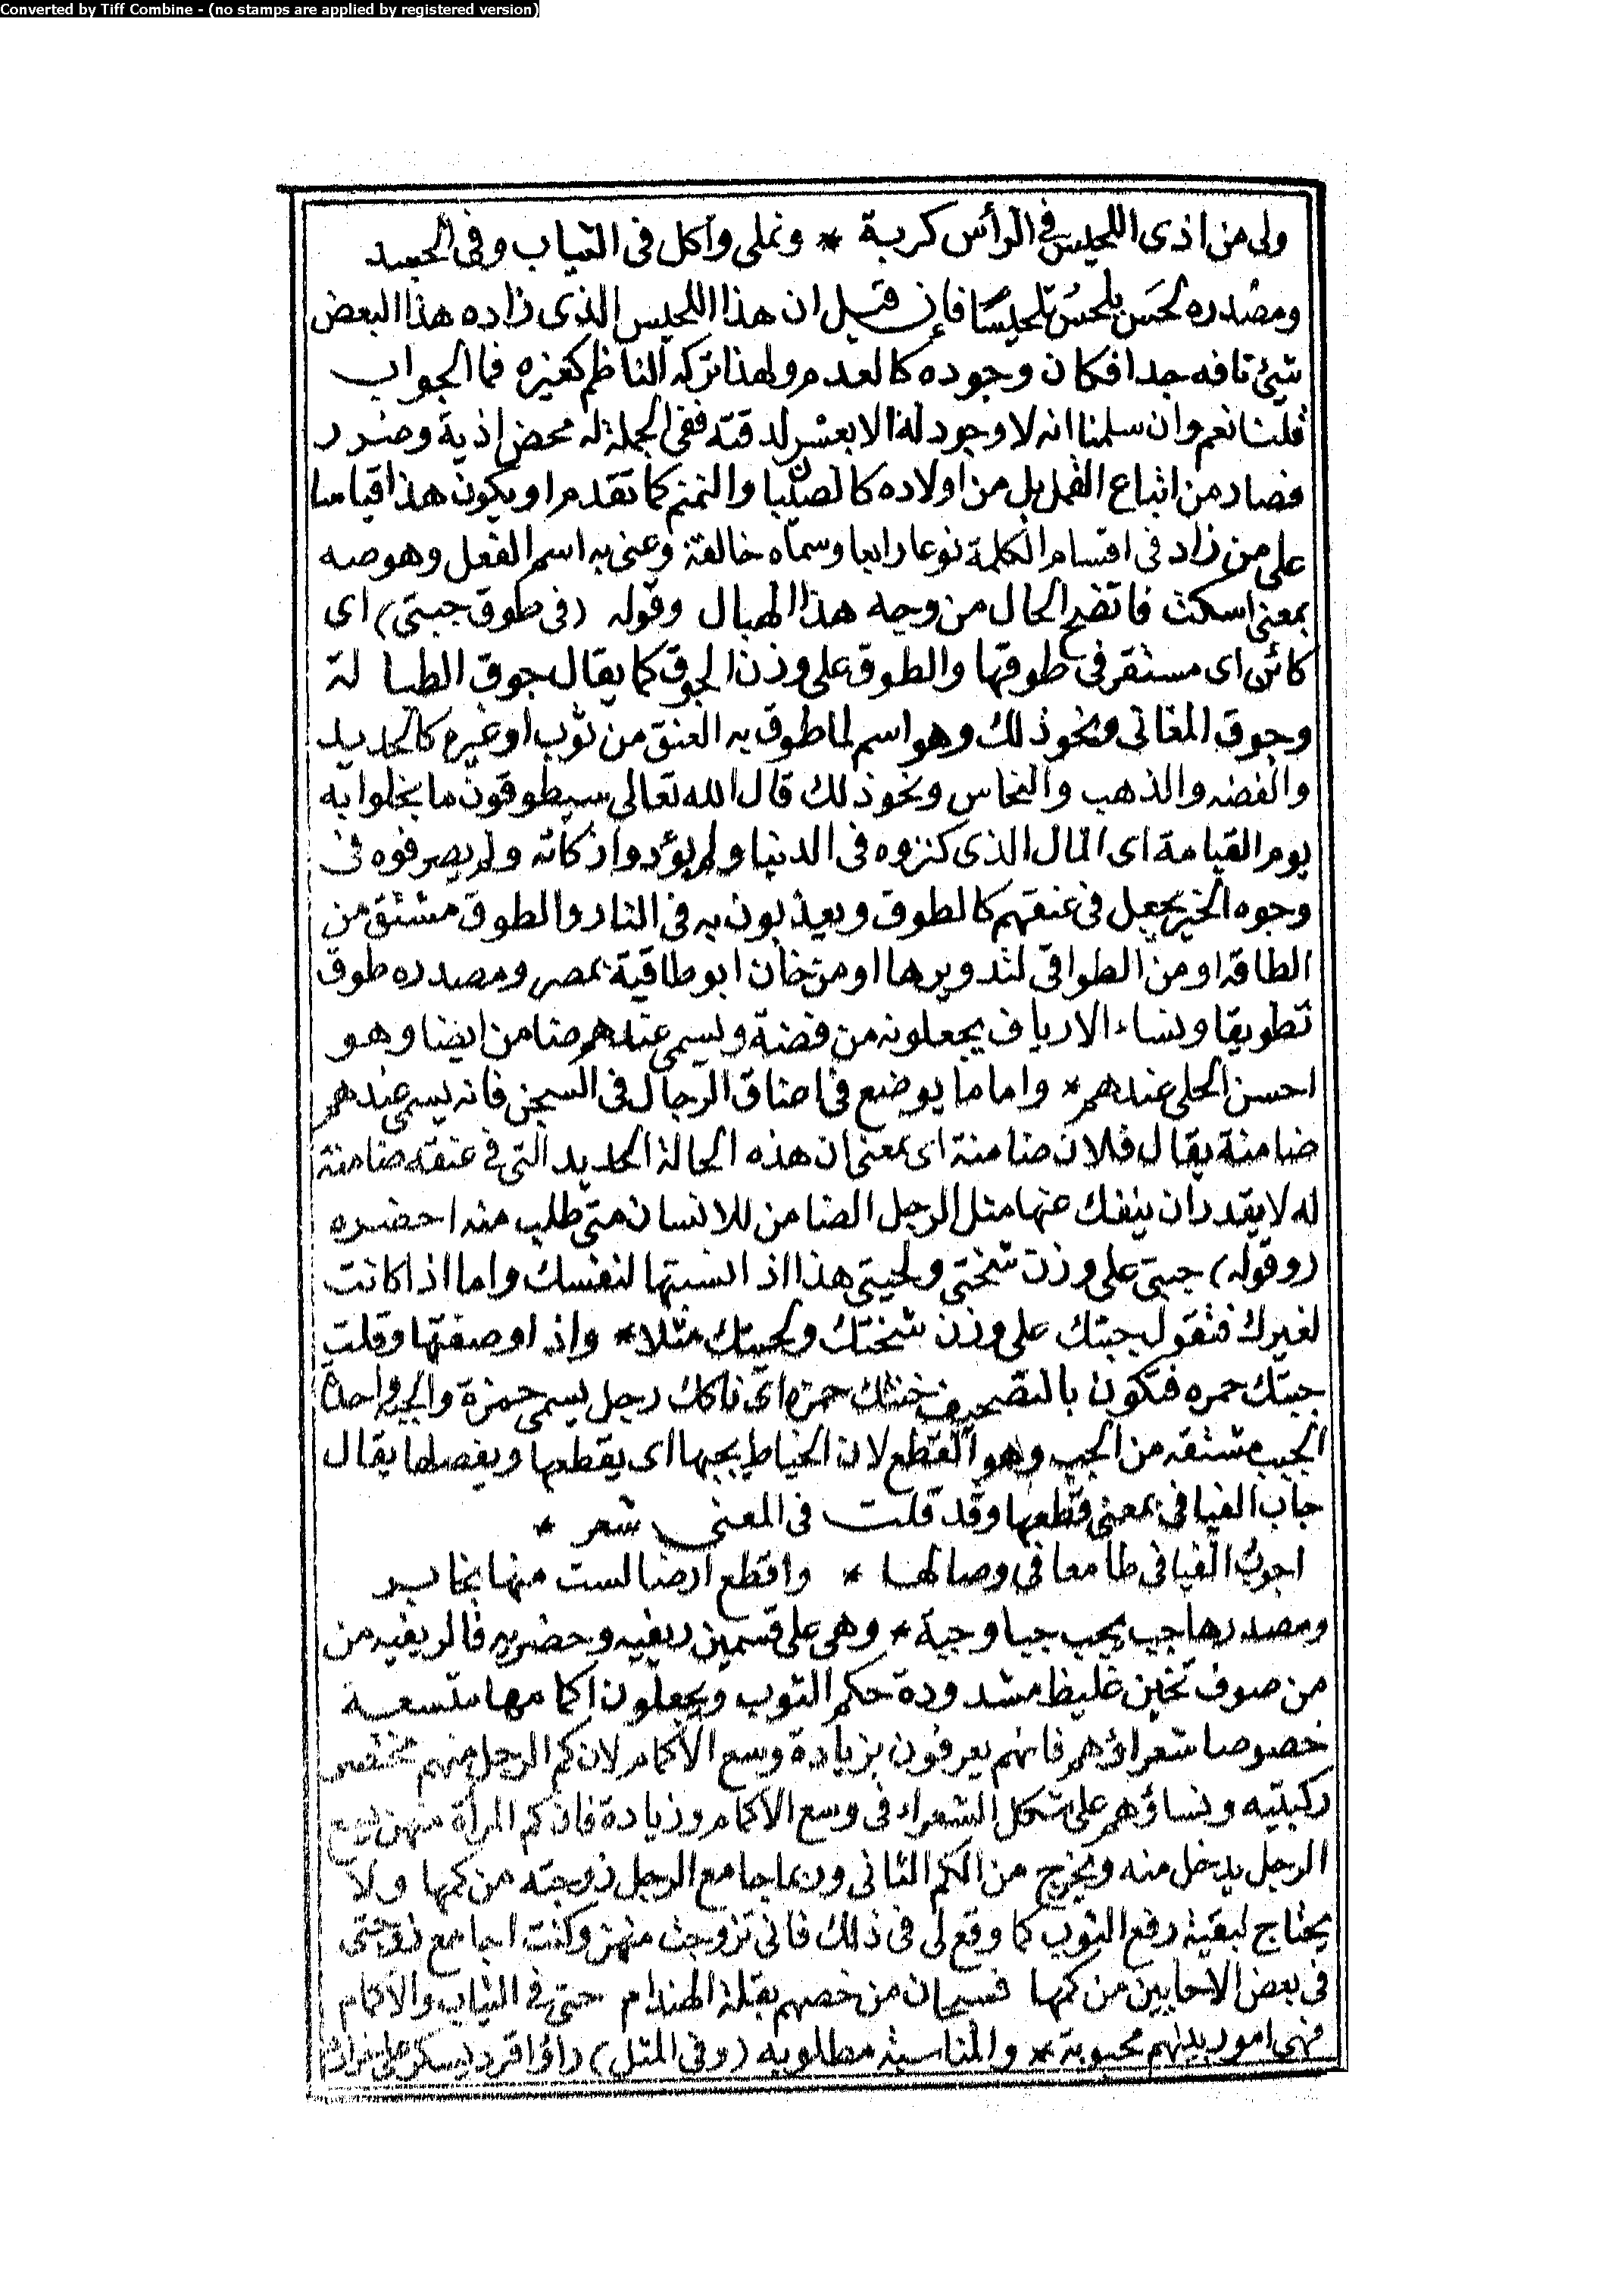 Converted by Tiff Combine - (no stamps are applied by registered version)
ولى من اذى اللحيس في الرأس كربة * ونملى وأكل فى الثياب وفى الجسد
ومصدره لحَس يلحسُ تلحيسًا فإن قيل ان هذا اللحيس الذى زاده هذا البعض
شيئ تافه جدا فكان وجوده كالعدم ولهذا تركه الناظم كغيره فما الجواب
قلنا نعم وان سلمنا انه لا وجود له الا بعسر لدقته ففى الجملة له محض اذية وضرر
فصار من اتباع القمل بل من اولاده كالصئبان والنمنم كما تقدم او يكون هذا قياسا
على من زاد فى اقسام الكلمة نوعا رابعا وسماه خالفة وعنى به اسم الفعل وهو صه
بمعنى اسكت فاتضح الحال من وجه هذا الهبال وقوله (فى طوق جبتى) اى
كائن اى مستقر فى طوقها والطوق على وزن الجوق كما يقال جوق الطبالة
وجوق المغانى ونحو ذلك وهو اسم لما طوق به العنق من ثوب او غيره كالحديد
والفضه والذهب والنحاس ونحو ذلك قال الله تعالى سيطوقون ما بخلوا به
يوم القيامة اى المال الذى كنزوه فى الدنيا ولم يؤدوا زكاته ولم يصرفوه فى
وجوه الخير يجعل فى عنقهم كالطوق ويعذبون به فى النار والطوق مشتق من
الطاقه او من الطواقى لتدويرها او من خان ابو طاقية بمصر ومصدره طوق
تطويقا ونساء الارياف يجعلونه من فضة ويسمى عندهم ضامن ايضا وهو
احسن الحلى عندهم * واما ما يوضع فى اعناق الرجال فى السجن فانه يسمى عندهم
ضامنة يقال فلان ضامنة اى بمعنى ان هذه الحالة الحديد التى فى عنقه ضامنة
له لا يقدر ان ينفك عنها مثل الرجل الضامن للانسان متى طلب منه احضره
(وقوله) جبتى على وزن شختى ولحيتى هذا اذا نسبتها لنفسك واما اذا كانت
لغيرك فتقول جبتك على وزن شختك ولحيتك مثلا * واذا وصفتها وقلت
جبتك حمره فتكون بالتصحيف خنتك حمزه اى ناكك رجل يسمى حمزة والجبه واحدة
الجبب مشتقه من الجب وهو القطع لان الخياط يجبها اى يقطعها ويفصلها يقال
جاب الفيافى بمعنى قطعها وقد قلت فى المعنى شعر *
اجوبُ الفيافى طامعا فى وصالها * واقطع ارضا لست منها بخابر
ومصدرها جب يجب جبا وجبة * وهى على قسمين ريفيه وحضريه فالريفيه من
من صوف تخين غليظ مشدودة حكم الثوب ويجعلون اكمامها متسعة
خصوصا شعراؤهم فانهم يعرفون بزيادة وسع الاكمام لان كم الرجل منهم
ركبتيه ونساؤهم على شكل الشعراء فى وسع الاكمام وزيادة فان كم المرأة منهن يسع
الرجل يدخل منه ويخرج من الكم الثانى وربما جامع الرجل زوجته من كمها ولا
يحتاج لبقية رفع الثوب كما وقع لى فى ذلك فانى تزوجت منهن وكنت اجامع زوجتى
فى بعض الاحايين من كمها فسبحان من خصهم بقلة الهندام حتى فى الثياب والاكمام
فهى امور بينهم محبوبة * والمناسبة مطلوبه (وفى المثل) رأوا قرد يسكر على